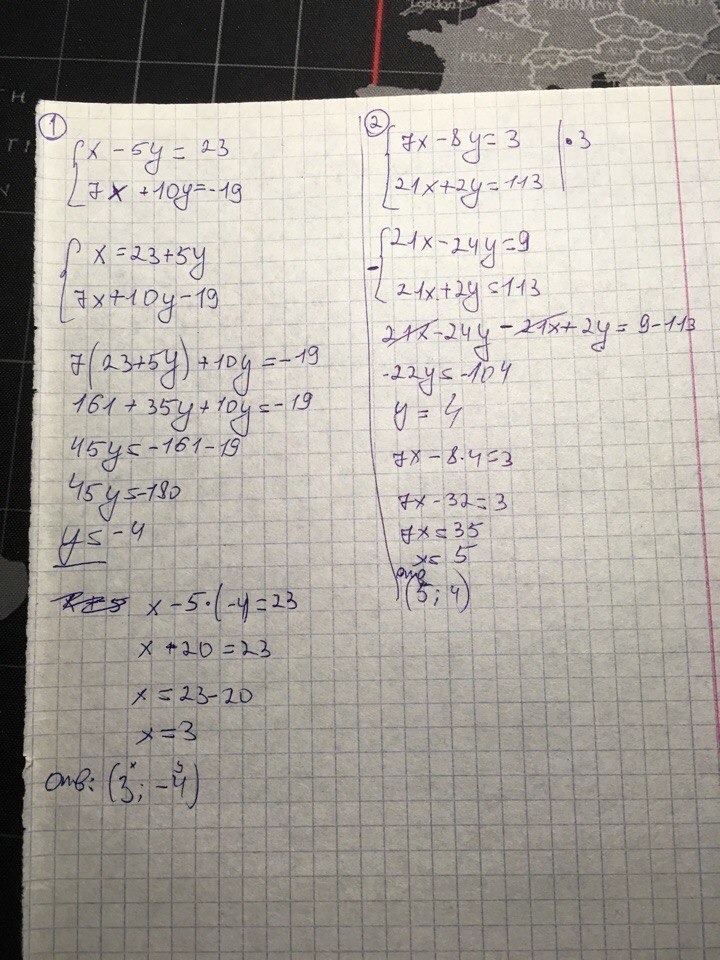 GERMANY
FRANCE
1
x - 5y = 23
7x + 10y = -19
x = 23 + 5y
7x + 10y - 19
7(23 + 5y) + 10y = -19
161 + 35y + 10y = -19
45y = -161 - 19
45y = -180
y = -4
x - 5 · (-4) = 23
x + 20 = 23
x = 23 - 20
x = 3
Отв: (3; -4)
2
7x - 8y = 3 | · 3
21x + 2y = 113
21x - 24y = 9
- 21x + 2y = 113
21x - 24y - 21x + 2y = 9 - 113
-22y = -104
y = 4
7x - 8 · 4 = 3
7x - 32 = 3
7x = 35
x = 5
отв
(5; 4)